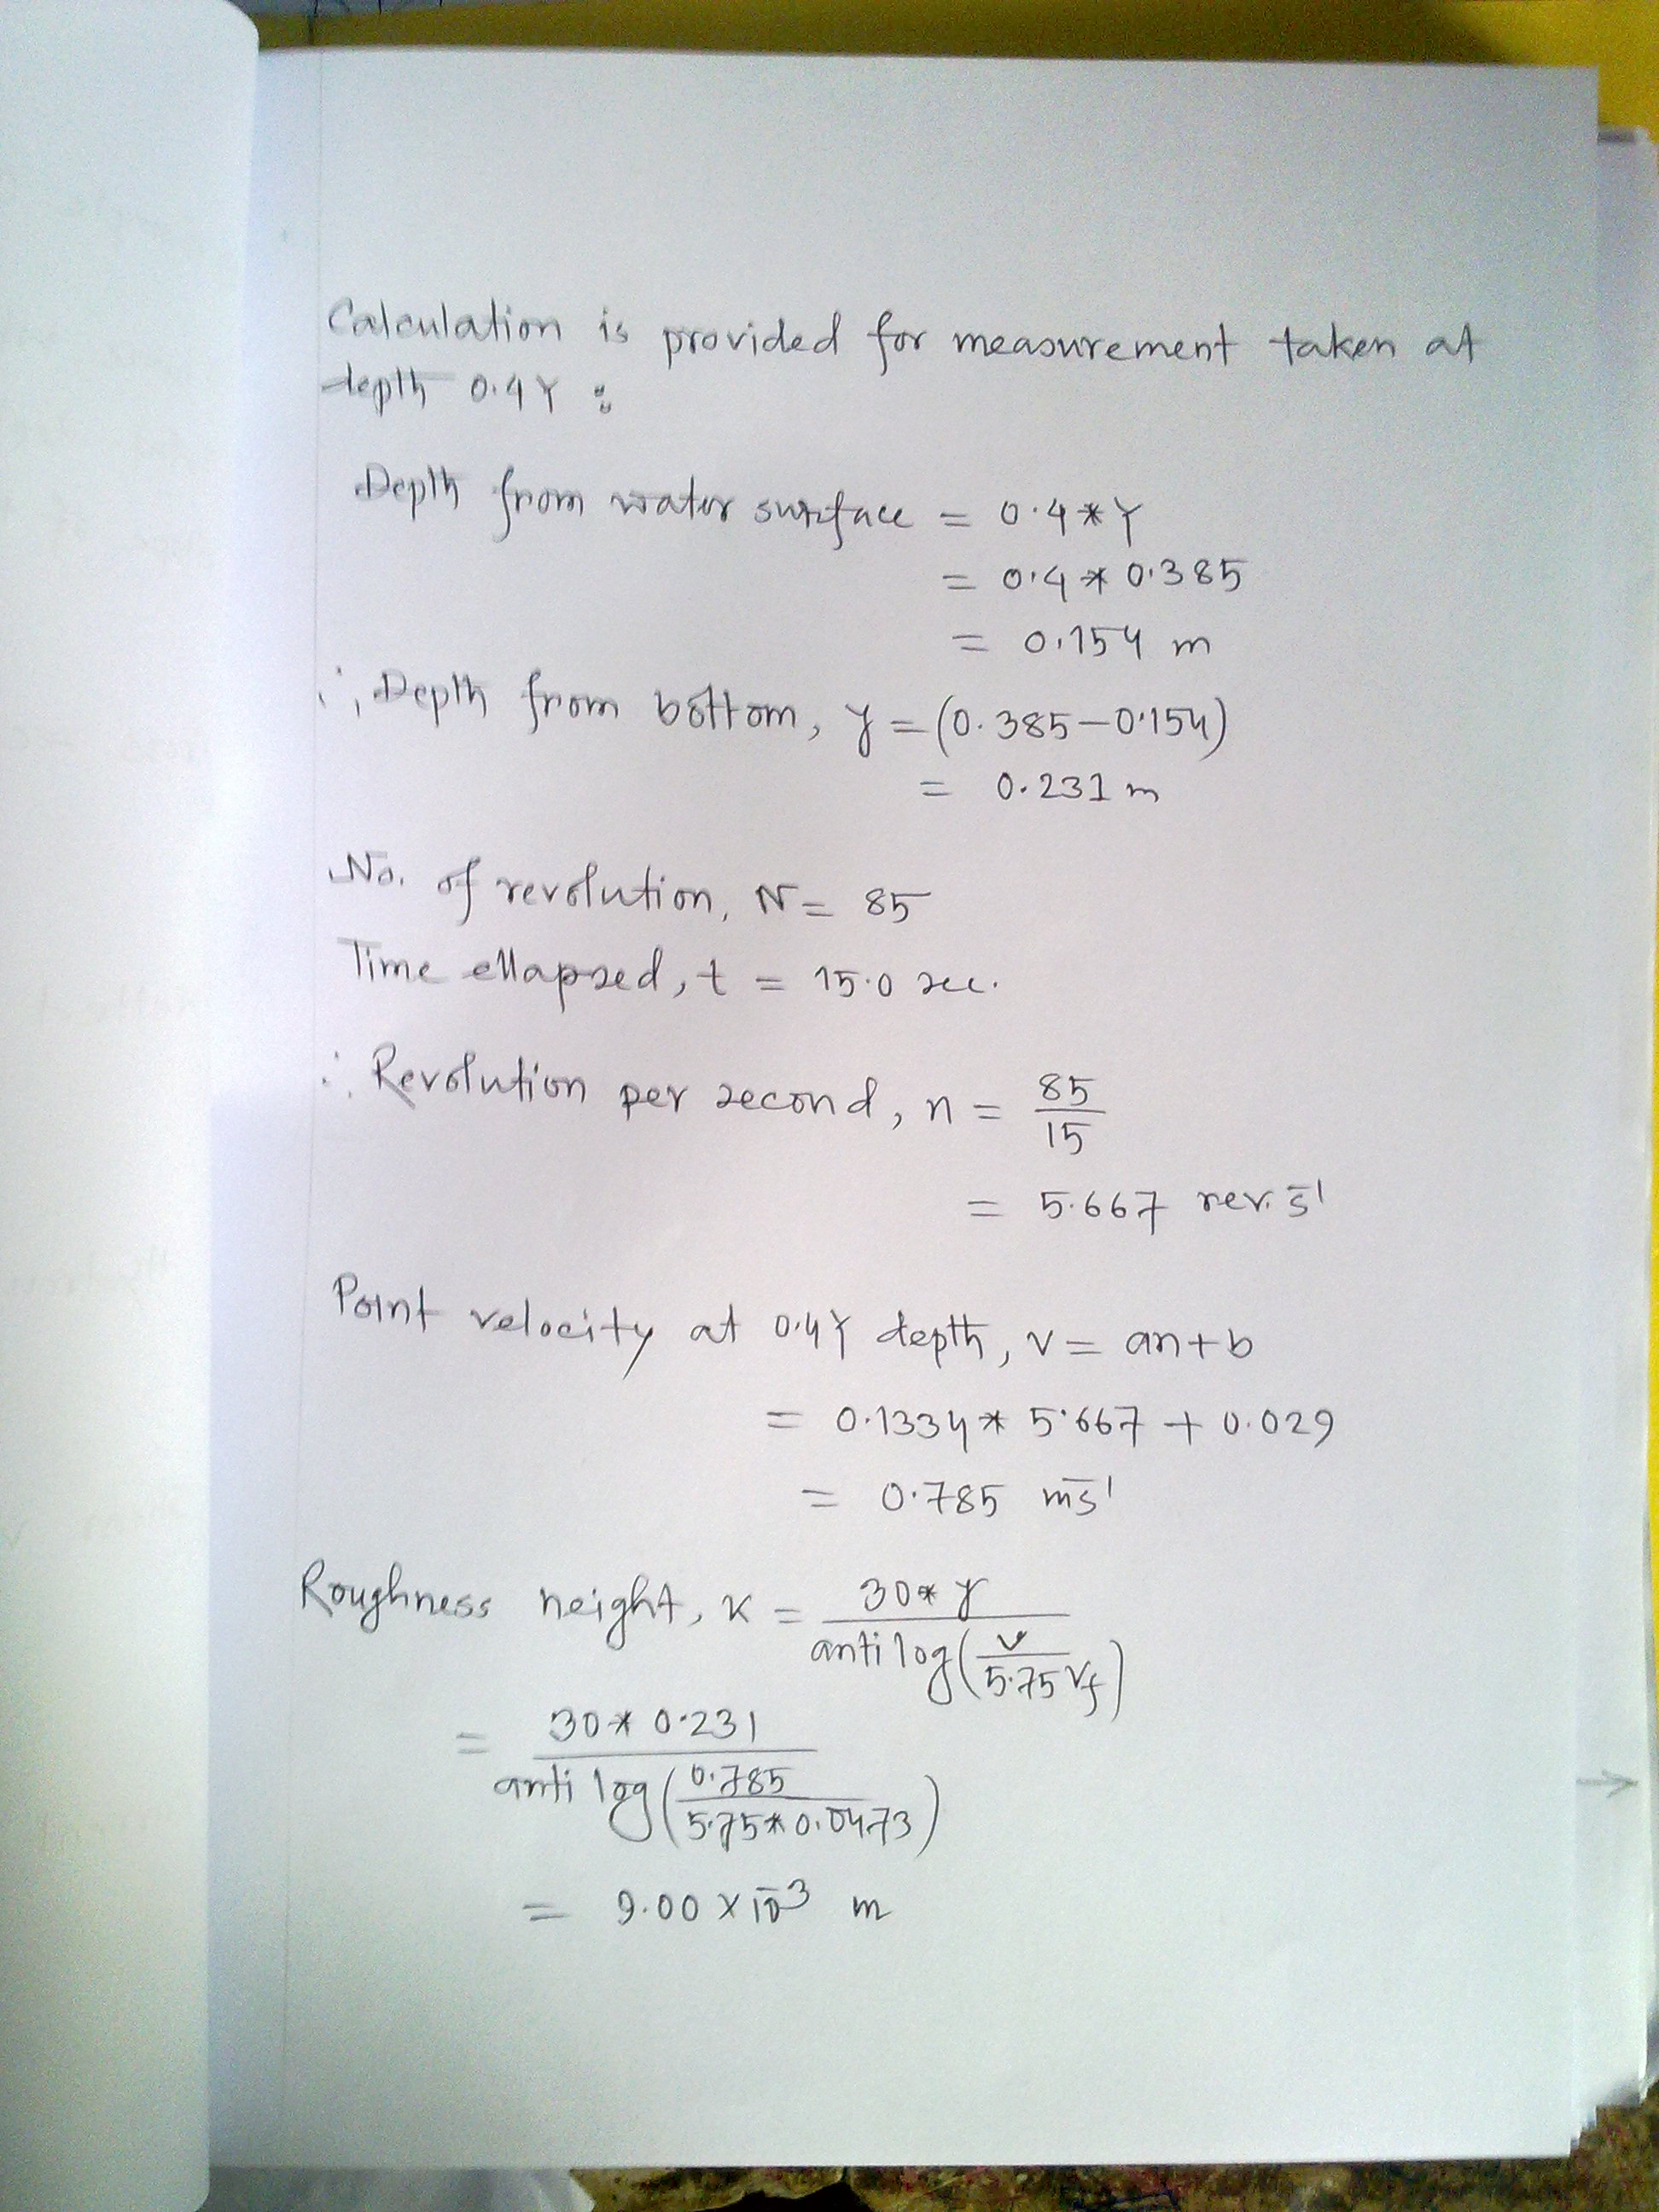 Calculation is provided for measurement taken at
depth 0.4Y :
Depth from water surface = 0.4*Y
= 0.4*0.385
= 0.154 m
∴ Depth from bottom, y = (0.385-0.154)
= 0.231 m
No. of revolution, N = 85
Time ellapsed, t = 15.0 sec.
∴ Revolution per second, n = 85/15
= 5.667 rev.s⁻¹
Point velocity at 0.4Y depth, v = an+b
= 0.1334*5.667+0.029
= 0.785 ms⁻¹
Roughness height, K = 30*y/antilog(v/5.75Vf)
= 30*0.231/antilog(0.785/5.75*0.0473)
= 9.00×10⁻³ m